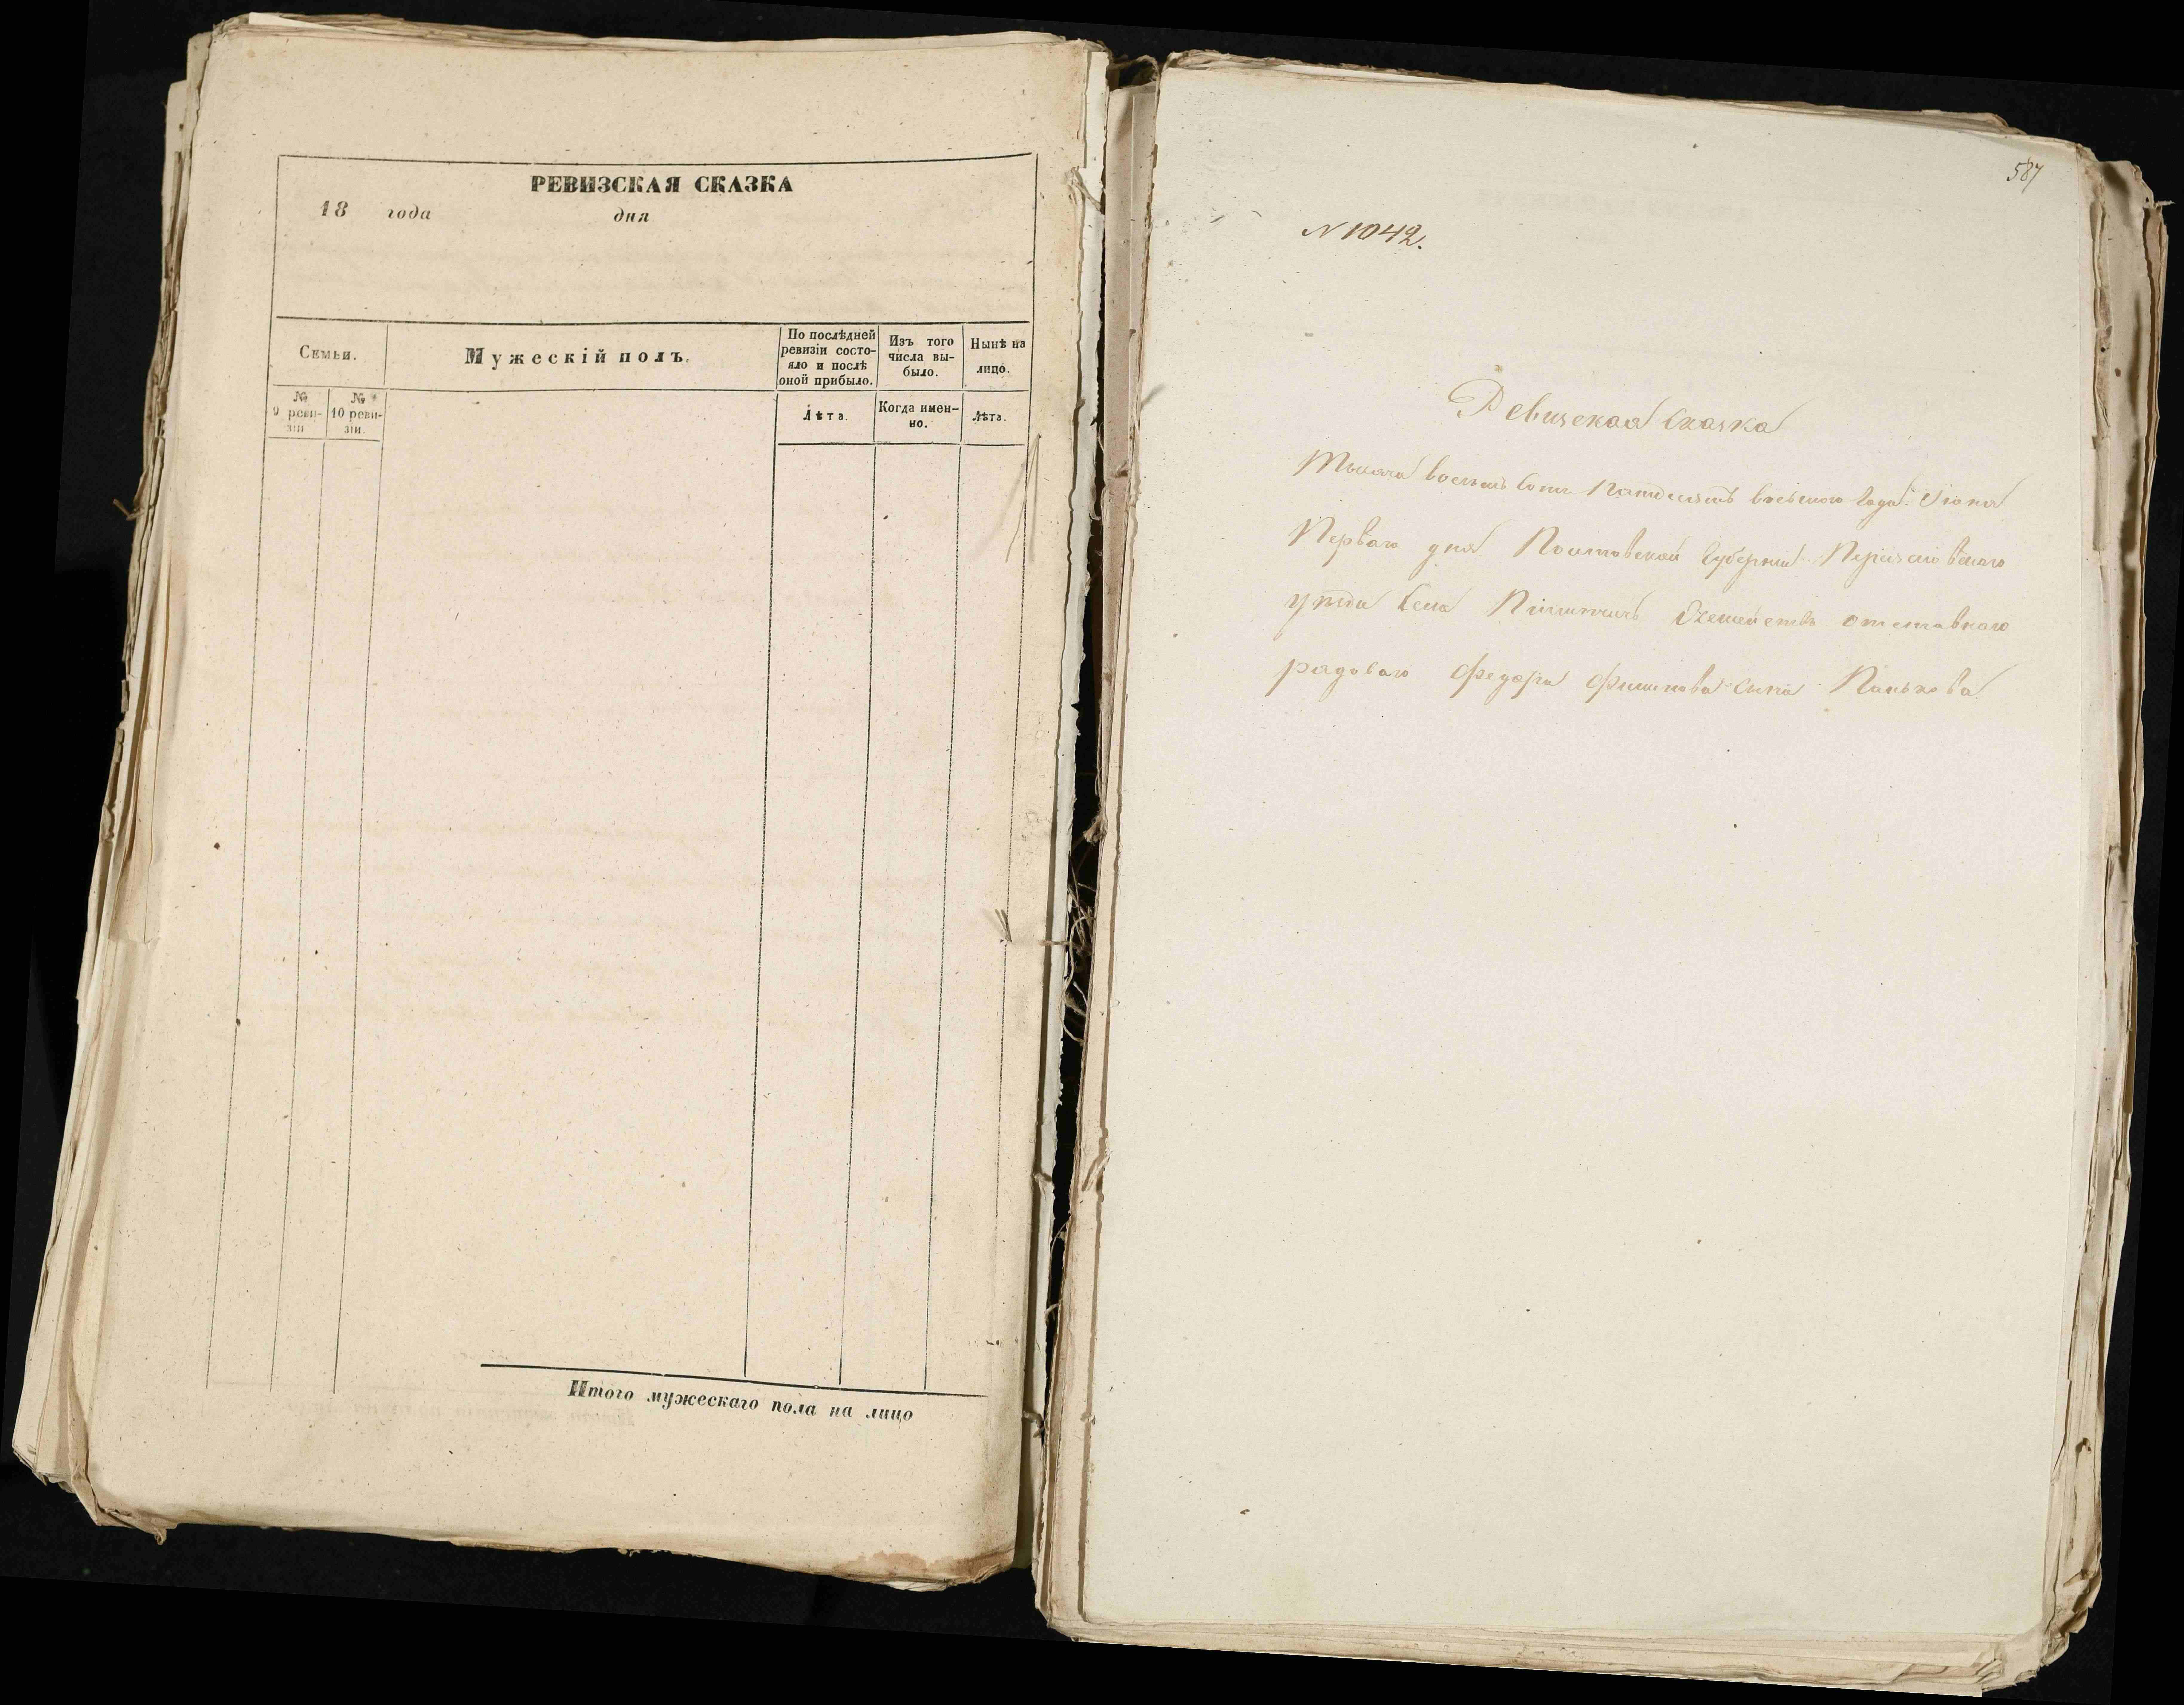 РЕВИЗСКАЯ СКАЗКА
18 года дня
Семьи.
Мужескій полъ.
По послѣдней ревизіи состояло и послѣ оной прибыло.
Изъ того числа выбыло.
Нынѣ на лицо.
№ 9 ревизіи
№ 10 ревизіи.
Лѣта.
Когда именно.
Лѣта.
Итого мужескаго пола на лицо
587
N 1042.
Ревизская Сказка
Тысяча восемь сотъ Пятдесятъ восьмого Года Іюня
Перваго дня Полтавской Губерніи Переяславского
уѣзда Села отставнаго
рядоваго Федора Филипова сына Панькова